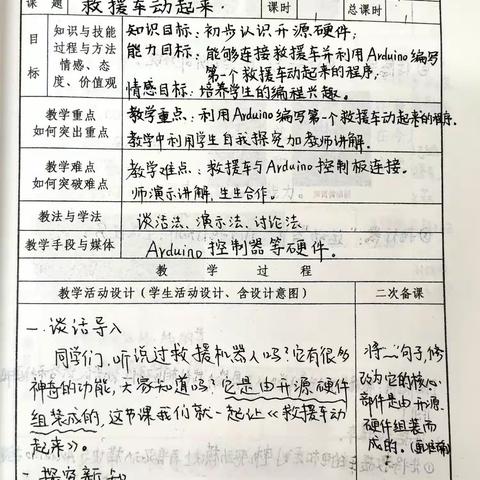 课 题 救援车动起来. 课时 总课时
目标 知识与技能 过程与方法 情感、态度、价值观
知识目标:初步认识开源硬件;
能力目标:能够连接救援车并利用Arduino编写
第一个救援车动起来的程序;
情感目标:培养学生的编程兴趣。
教学重点 如何突出重点
教学重点:利用Arduino编写第一个救援车动起来的程序.
教学中利用学生自我探究加教师讲解.
教学难点 如何突破难点
教学难点:救援车与Arduino控制板连接.
师演示讲解,生生合作。
教法与学法 谈话法、演示法、讨论法
教学手段与媒体 Arduino控制器等硬件。
教 学 过 程
教学活动设计(学生活动设计、含设计意图) 二次备课
一.谈话导入
同学们,听说过救援机器人吗?它有很多
神奇的功能,大家知道吗?它是由开源硬件
组装成的,这节课我们就一起让《救援车动
起来》。
将""句子,修
改为它的核心
部件是由开源
硬件组装而
成的。
探究新知